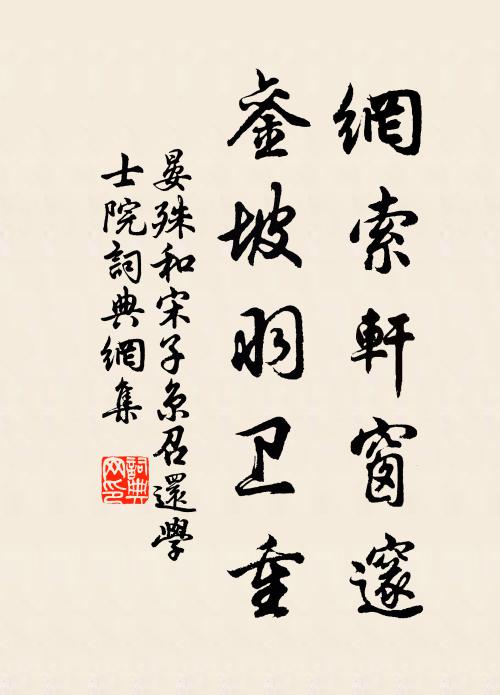 網索軒窗邃
銮坡羽卫重
晏殊和宋子京召還學
士院詞典網集
詞典
网印